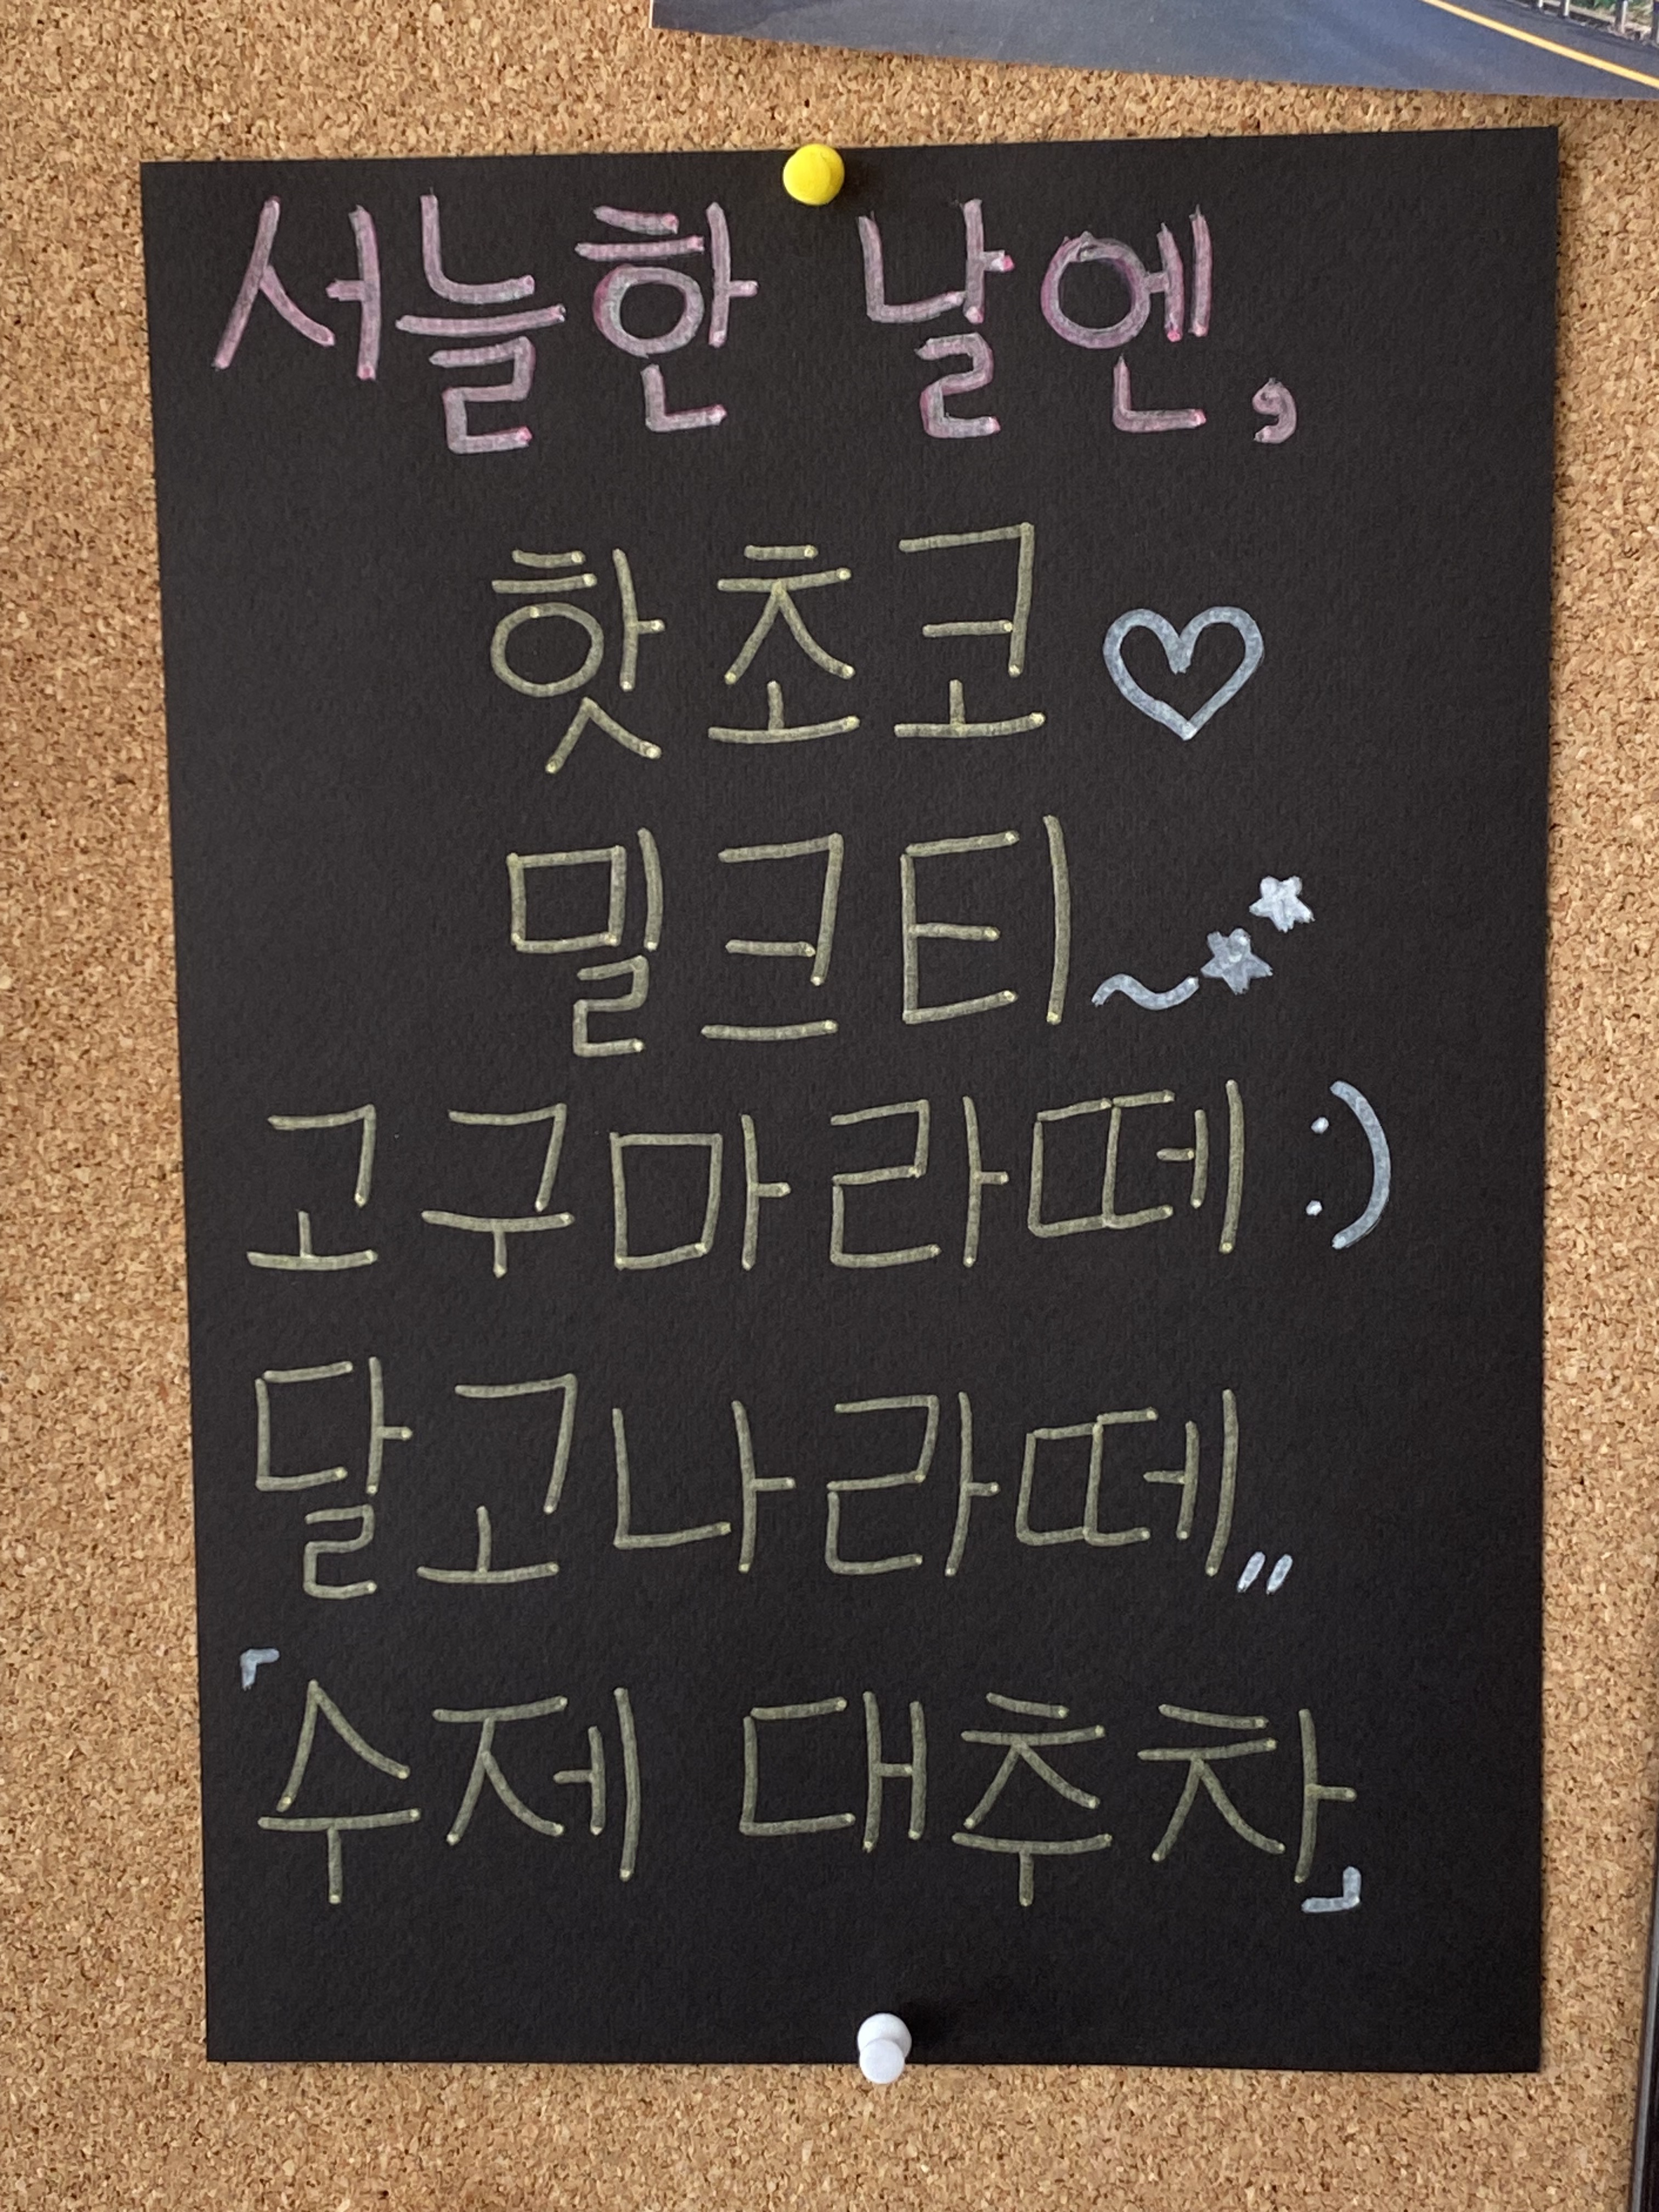 서늘한 날엔,
핫초코 ♡
밀크티~**
고구마라떼 :)
달고나라떼,,
「수제 대추차」